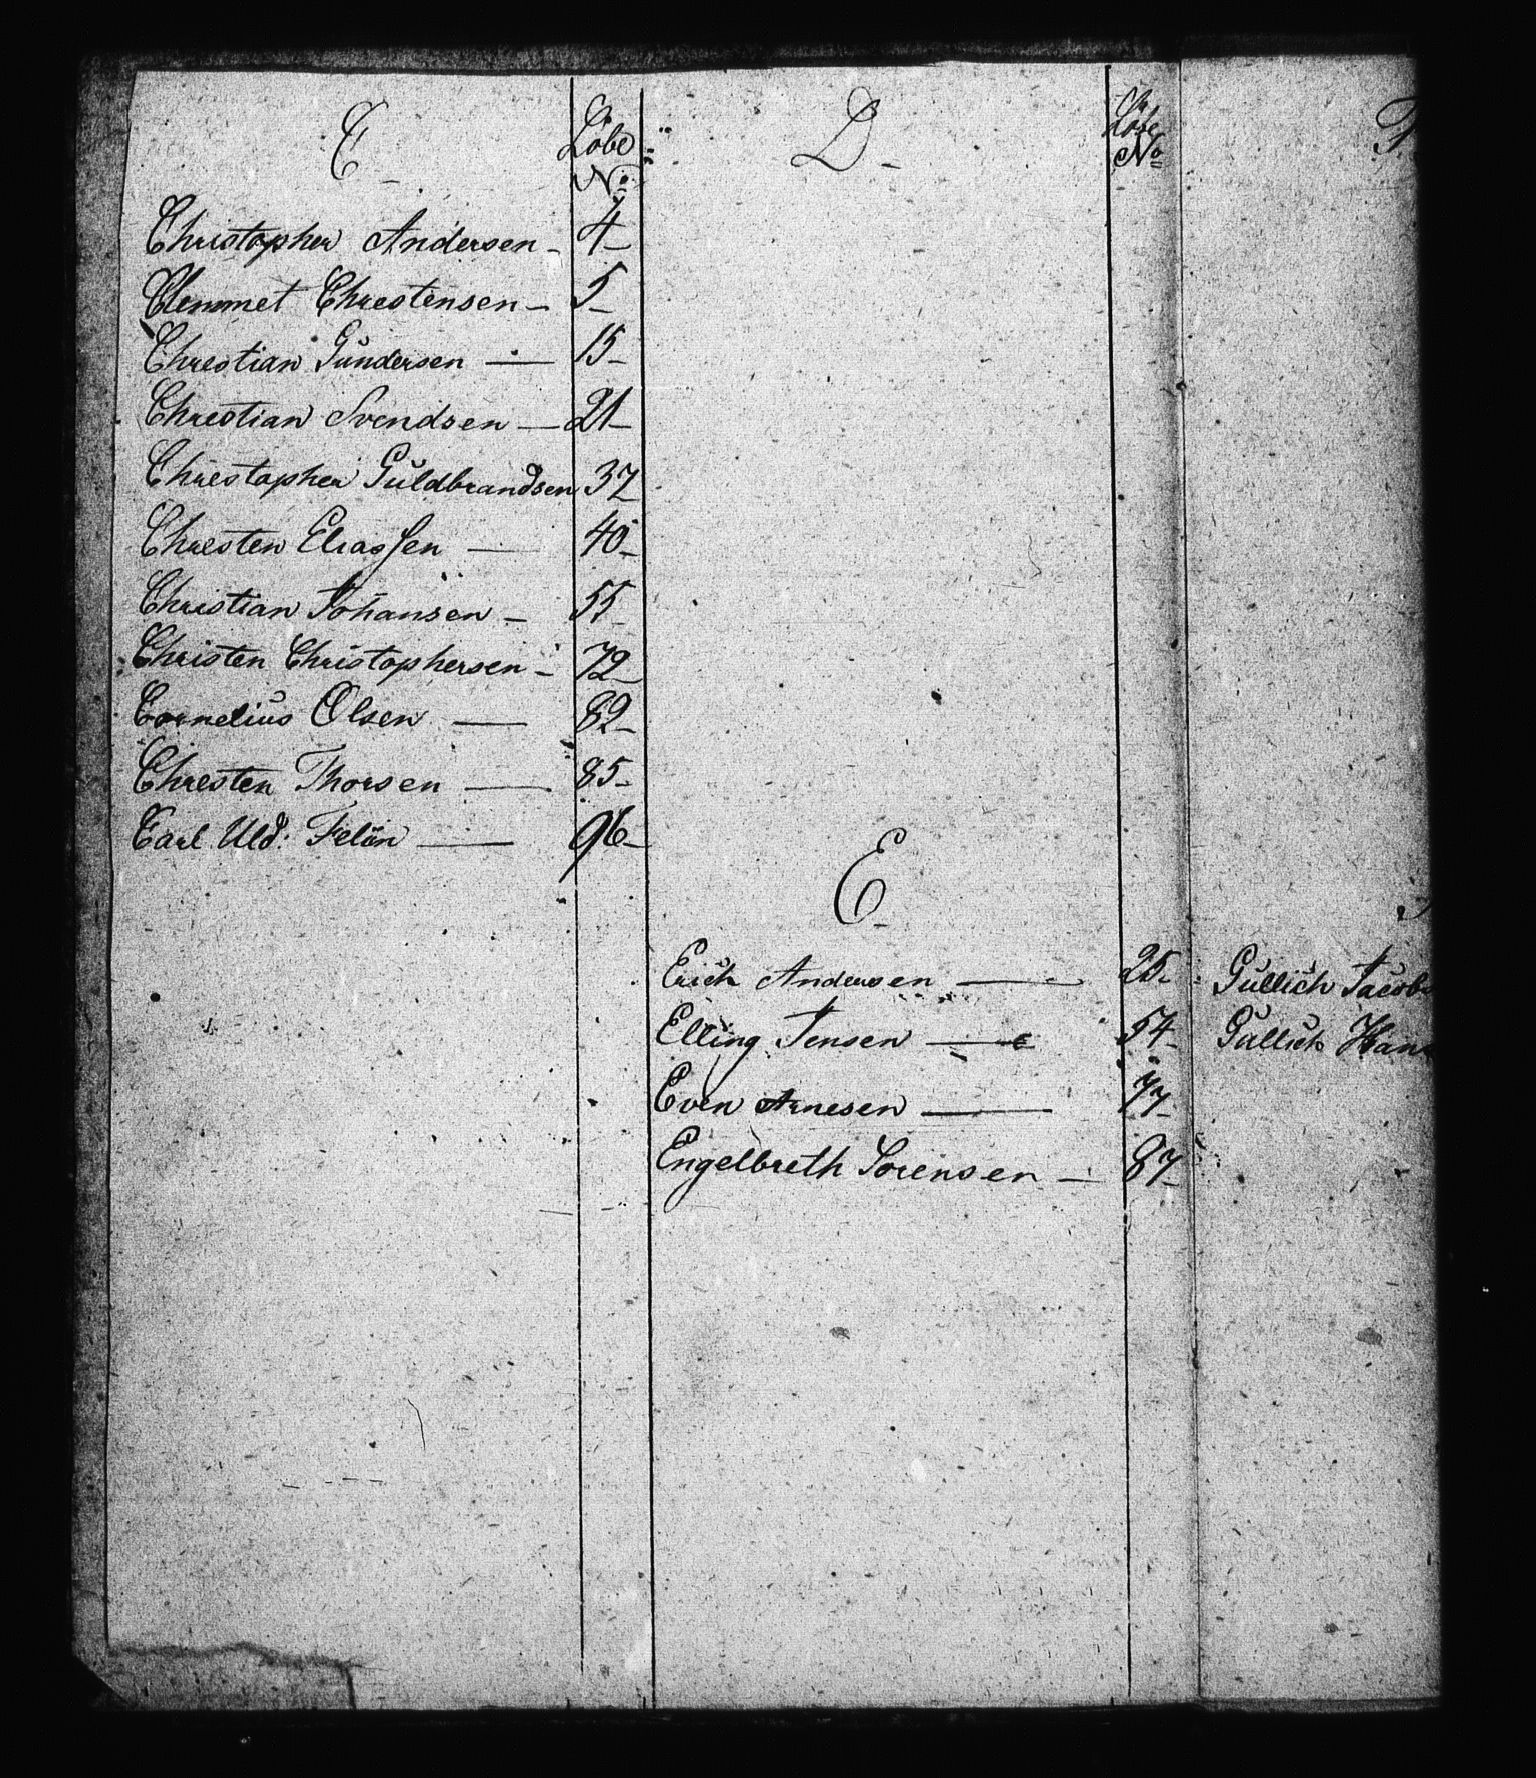 C
Løbe
No
Christopher Andersen - 4
Clemmet Chrestensen - 5
Chrestian Gundersen - 15
Chrestian Svendsen - 21
Chrestopher Guldbrandsen 37
Chresten Eliassen - 40
Christian Johansen - 55
Christen Christophersen - 72
Cornelius Olsen - 82
Chresten Thorsen - 85
Carl Uld. Felön - 96
D
Løbe
No
E
Erich Andersen - 25
Elling Jensen - 54
Even Arnesen - 77
Engelbreth Sorensen - 87
Gullich Jacob
Gullich Han